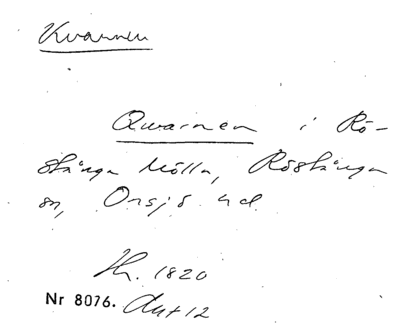 Kvarnen
Qwarnen i Rö-
stånga Mölla, Röstånga
sn, Onsjö hd.
Hr. 1820
Nr 8076. Akt 12